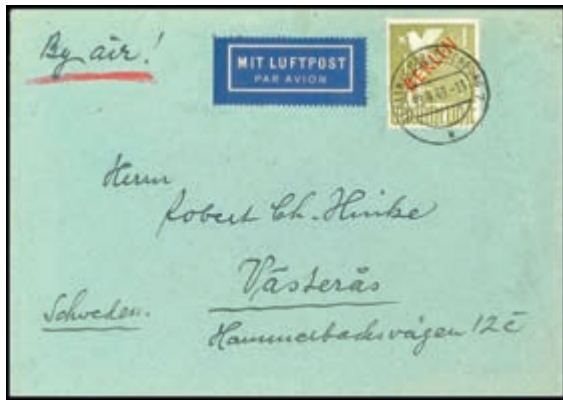 By air!
MIT LUFTPOST
PAR AVION
BERLIN
Herrn
Robert Ch. Hinke
Västerås
Schweden.
Hammarbacksvägen 12c